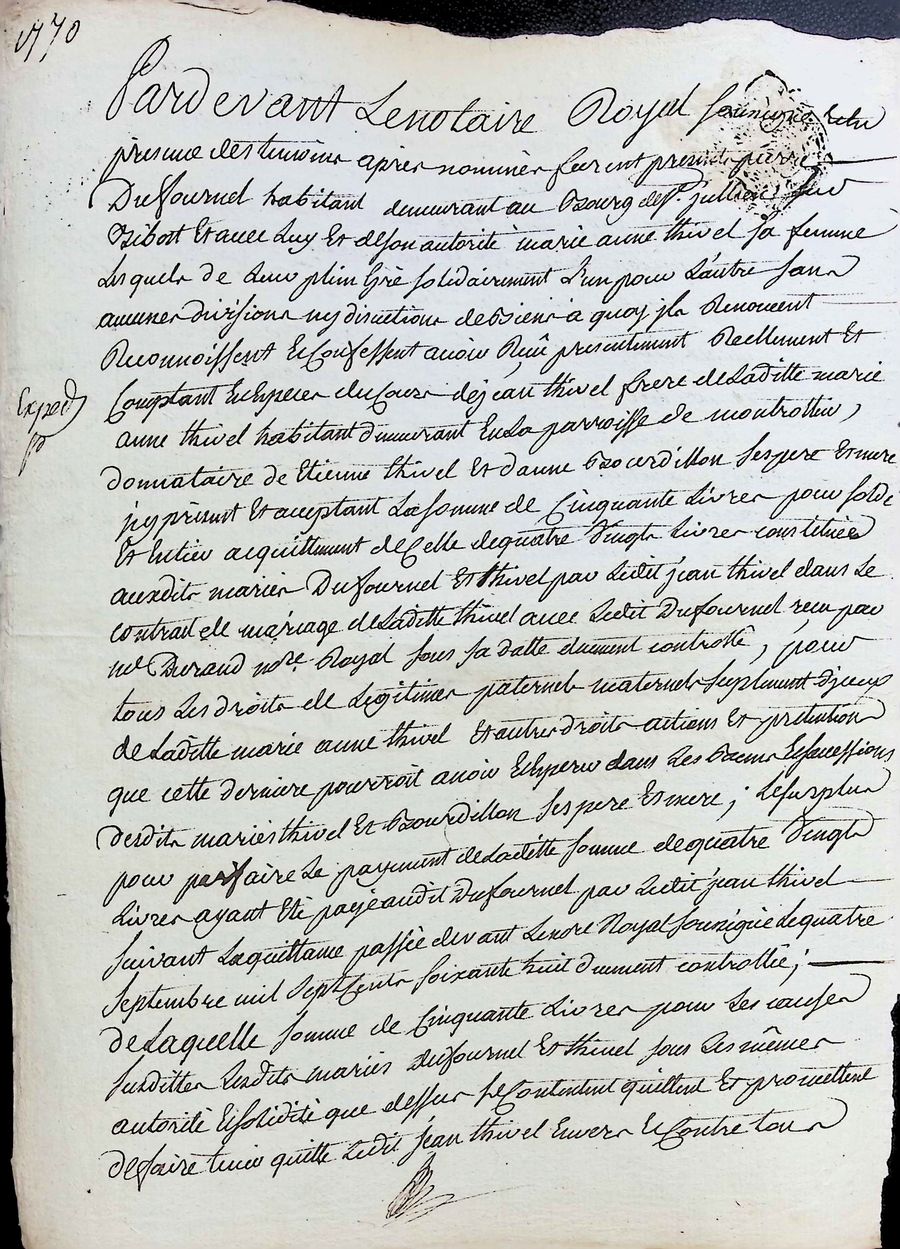 1770
Pardevant Le notaire Royal soussigné et en
presence des temoins après nommés furent presents pierre
Dufournel habitant demeurant au Bourg de St. jullien sur
Bibost Et avec Luy Et de son autorité marie anne thivel sa femme
Lesquels de Leur plein Gré solidairement L'un pour L'autre sans
aucunes divisions ny discutions de Biens à quoy jls Renoncent
Reconnoissent Et Confessent avoir Reçû presentement Reellement Et
Comptant En Especes du Cours de jean thivel frere de Laditte marie
Exped
anne thivel habitant demeurant En La parroisse de montrottier,
donnataire de Etienne thivel Et d'anne Bourdillon ses pere Et mere
jcy présent Et acceptant La somme de Cinquante Livres pour solde
Et Entier acquittement de Celle de quatre Vingts Livres constituée
auxdits mariés Dufournel Et thivel par Ledit jean thivel dans Le
contrait de mariage de Laditte thivel avec Ledit Dufournel reçu par
me Durand nore. Royal sous sa datte duement controllé, pour
tous Les droits de Legitimes paternels maternels suplement d'jceux
de Laditte marie anne thivel Et autres droits actions Et pretentions
que cette derniere pourroit avoir Et Esperer dans Les Biens Et successions
desdits mariés thivel Et Bourdillon ses pere Et mere; Le surplus
pour parfaire Le payement de Laditte somme de quatre Vingts
Livres ayant Eté payé audit Dufournel par Ledit jean thivel
suivant La quittance passée devant Le nore Royal soussigné Le quatre
septembre mil sept Cents soixante huit duement controllée;
de Laquelle somme de Cinquante Livres pour Les causes
susdittes Lesdits mariés Dufournel Et thivel sous Les mêmes
autorité Et solidité que dessus se Contentent quittent Et promettent
de faire tenir quitte Ledit jean thivel Envers Et Contre tous